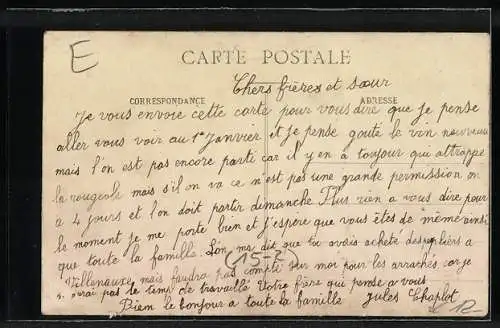 E
CARTE POSTALE
Chers frères et sœur
CORRESPONDANCE
ADRESSE
Je vous envoie cette carte pour vous dire que je pense
aller vous voir au 1er Janvier et je pense goute le vin nouveau
mais l'on est pas encore parti car il y en a toujour qui attrappe
la rougeole mais s'il on va ce n'est pas une grande permission on
a 4 jours et l'on doit partir dimanche Plus rien a vous dire pour
le moment je me porte bien et j'espère que vous êtes de même ainsi
que toute la famille. L'on ma dit que tu avais acheté des a
(15-2)
Villenauxe mais faudra pas compté sur moi pour les arrachés car je
n'aurai pas le temp de travaillé Votre frère qui pense a vous
Bien le bonjour a toute la famille Jules Chaplot
12